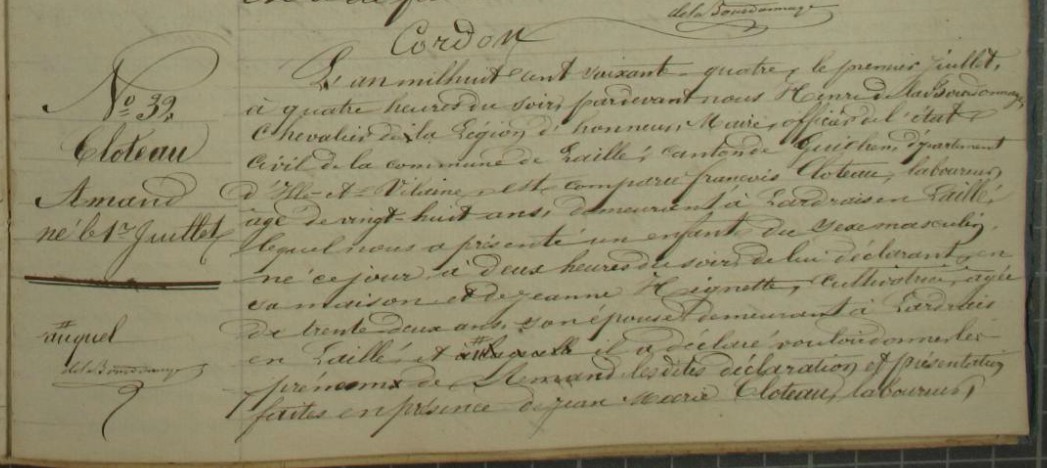 de la Bourdonnaye
Cordon
N° 39,
Cloteau
Amand
né le 1er Juillet
L'an mil huit cent soixante-quatre, le premier juillet,
à quatre heures du soir, pardevant nous Henri de la Bourdonnaye,
Chevalier de la Légion d'honneur, Maire, officier de l'état
Civil de la commune de Laillé, canton de Guichen, département
d'Ille-et-Vilaine, est comparu françois Cloteau, laboureur,
âgé de vingt-huit ans, demeurant à Lardrais en Laillé,
lequel nous a présenté un enfant du sexe masculin,
né ce jour à deux heures du soir, de lui déclarant, en
sa maison et de jeanne Hignette, cultivatrice, agée
de trente-deux ans, son épouse, demeurant à Lardrais
en Laillé, et # il a déclaré vouloir donner les
prénoms de Amand lesdites déclaration et présentation
faites en présence de jean Marie Cloteau, laboureur,
# auquel
de la Bourdonnaye